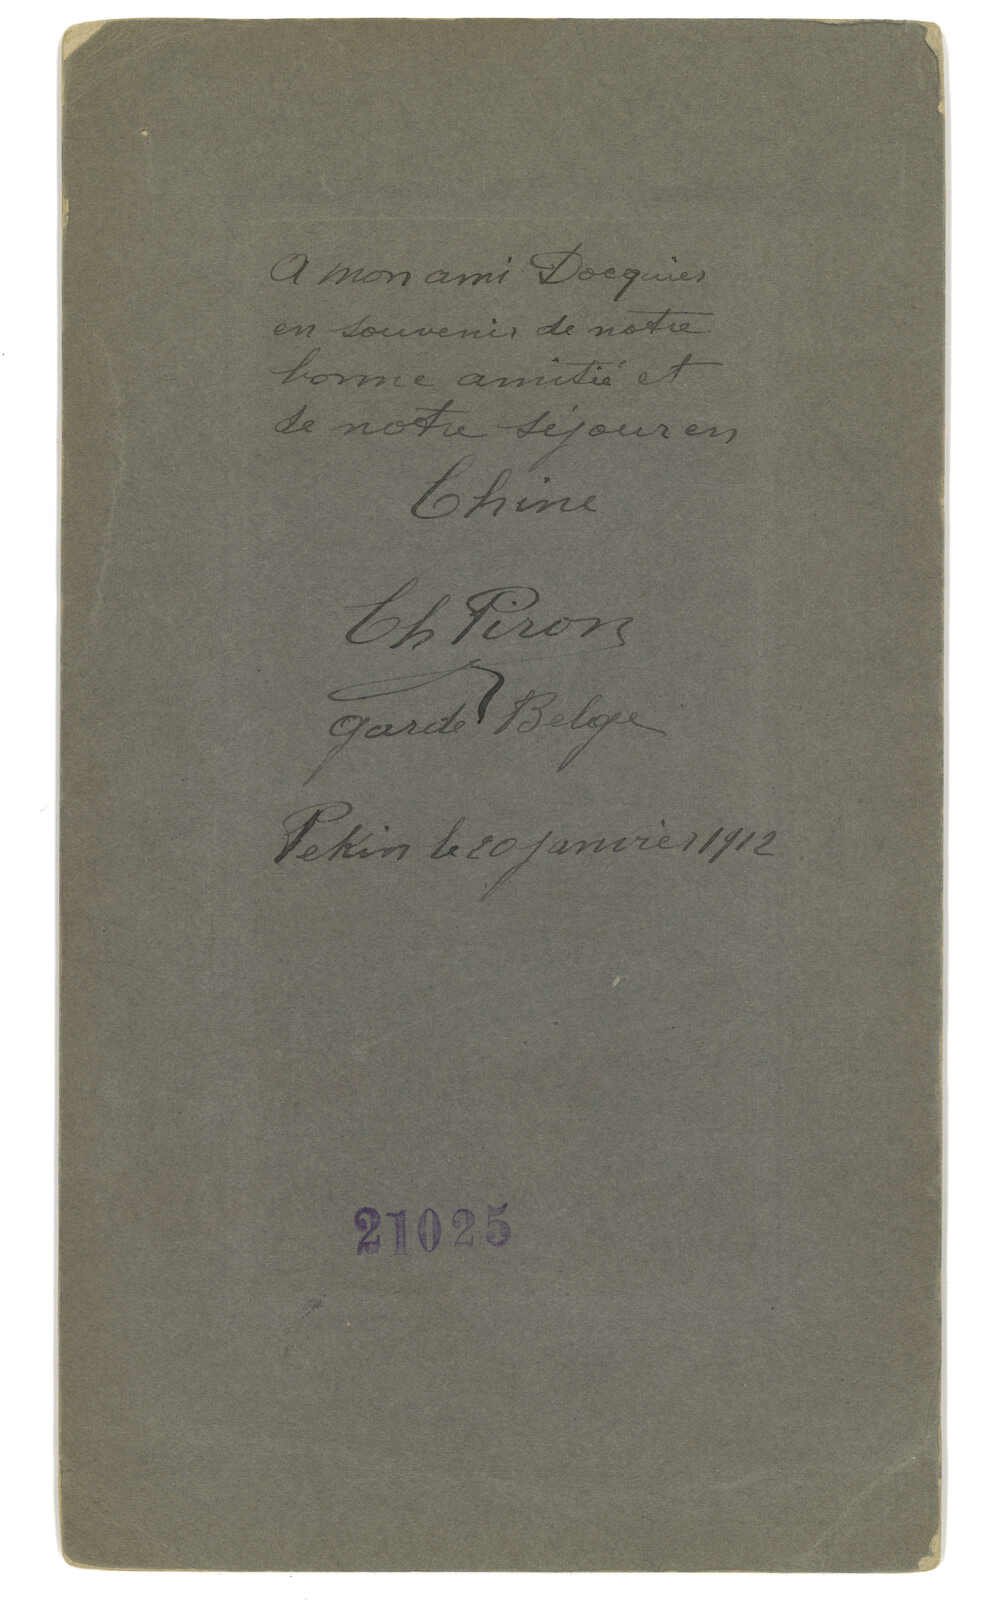 A mon ami Docquier
en souvenir de notre
bonne amitié et
de notre séjour en
Chine
Ch Piron
garde Belge
Pekin le 20 janvier 1912
21025